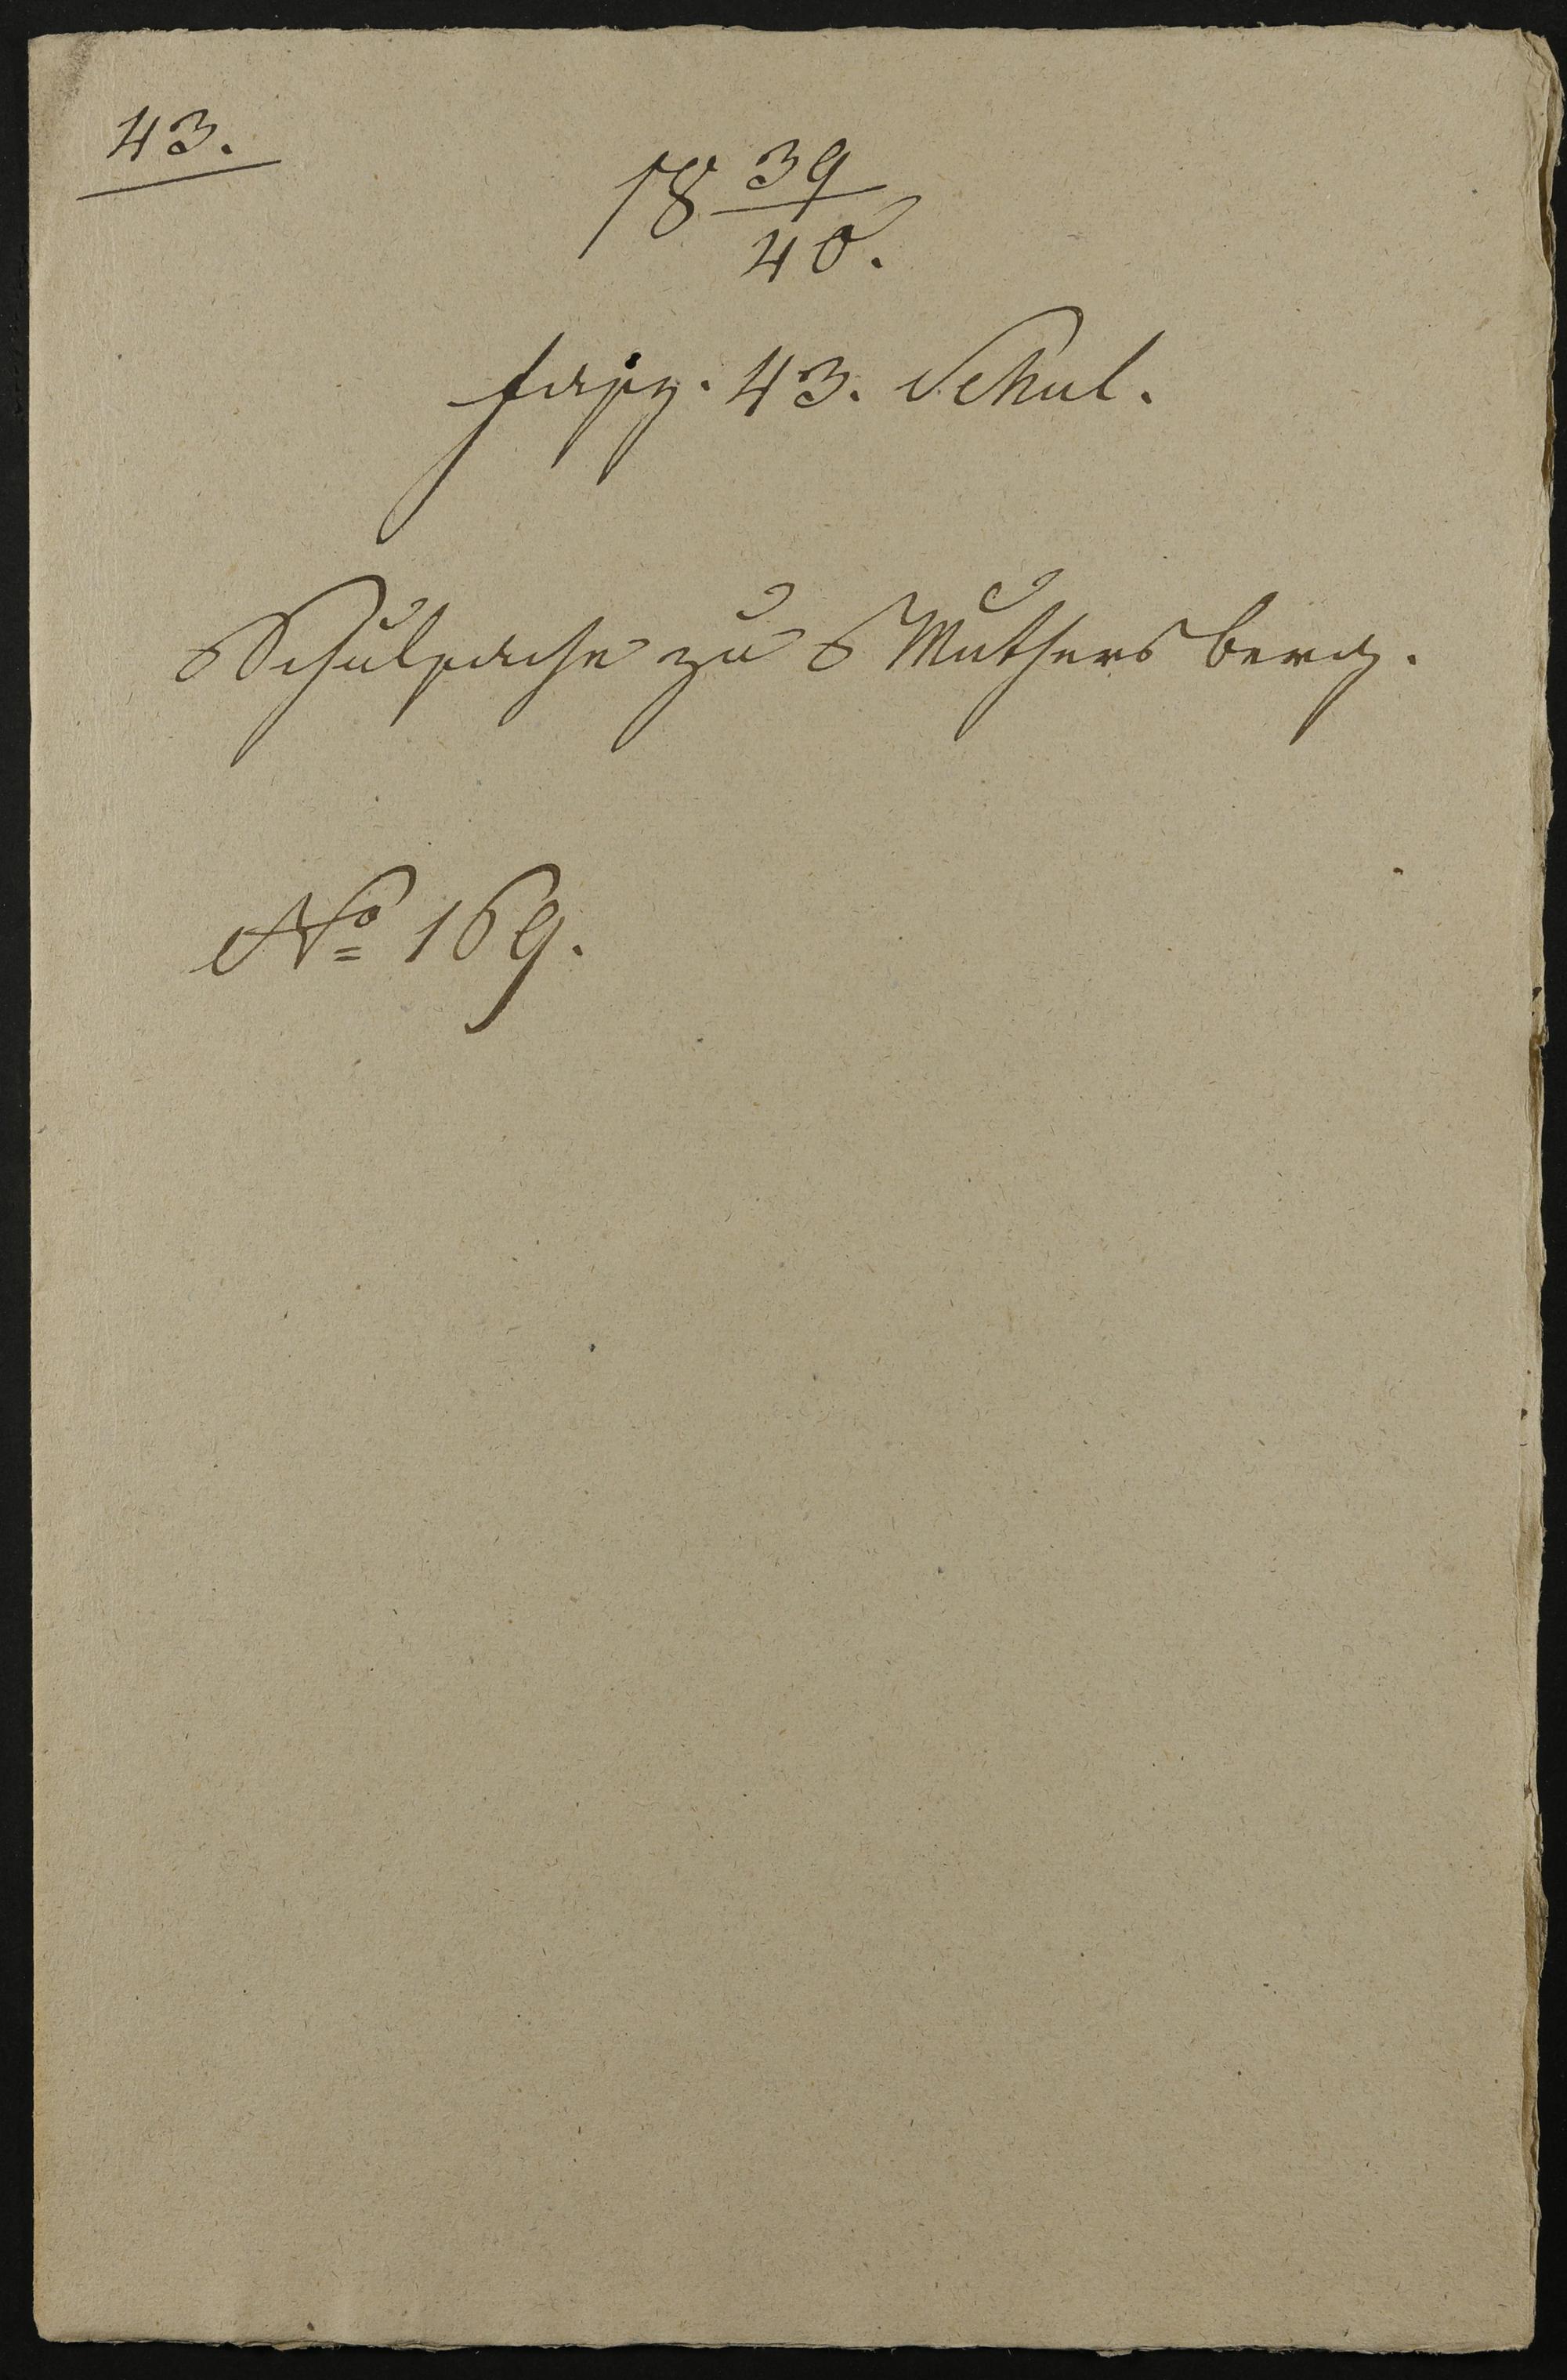 43.
18 39/40.
fasz. 43. Schul.
Schulsache zu Muthersberg.
No 169.